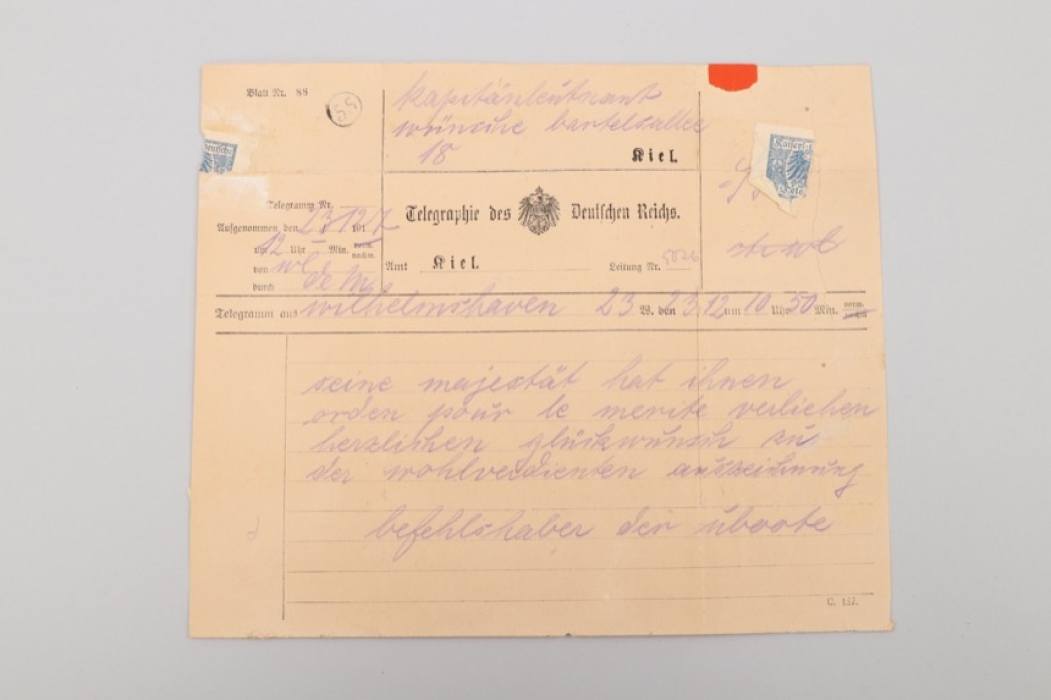 Blatt Nr. 88
SS
kapitänleutnant
wünsche bartelsallee
18 Kiel.
Deutsch
Kaiserl.
Telegramm Nr.
Telegraphie des Deutschen Reichs.
Aufgenommen den 23 12 191 7
um 12 Uhr Min. vorm. nachm.
von wl
durch
Amt Kiel. Leitung Nr. 5026
Telegramm aus wilhelmshaven 23 W. den 23 12 um 10 Uhr 50 Min. vorm. nachm.
seine majestät hat ihnen
orden pour le merite verliehen
herzlichen glückwunsch zu
der wohlverdienten auszeichnung
befehlshaber der uboote
C. 187.